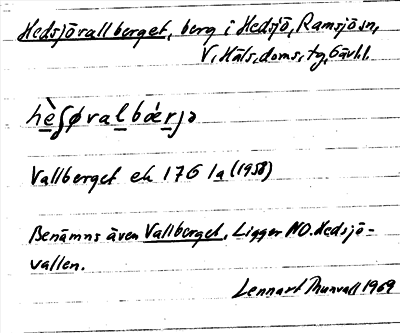 Hedsjövallberget, berg i Hedsjö, Ramsjö sn,
V. Häls. doms. tg, Gävl.l.
hèʃøvalbáerjɔ
Vallberget ek 17G 1a (1958)
Benämns även Vallberget. Ligger NO. Hedsjö-
vallen.
Lennart Thunvall 1969